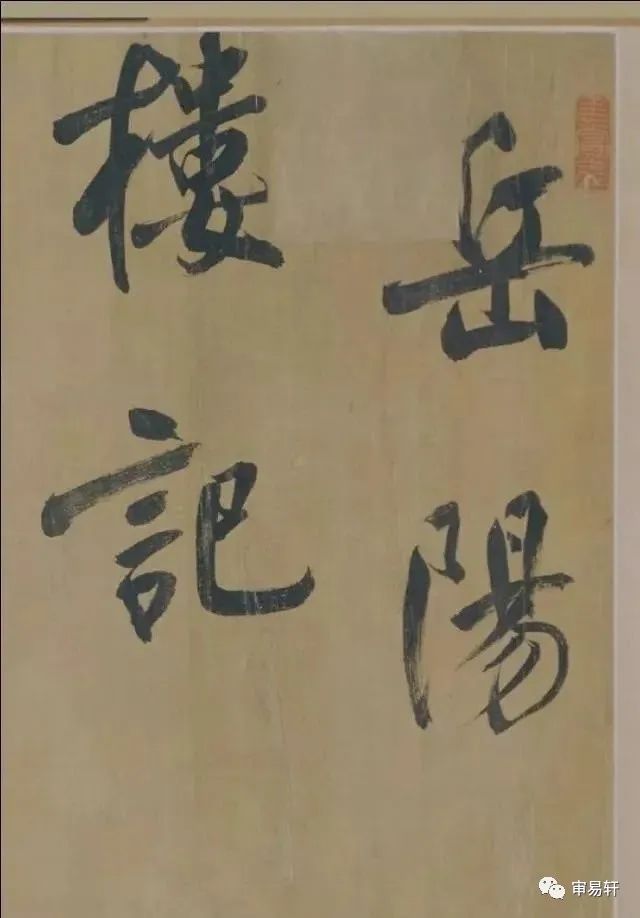 岳陽
樓記
审易轩